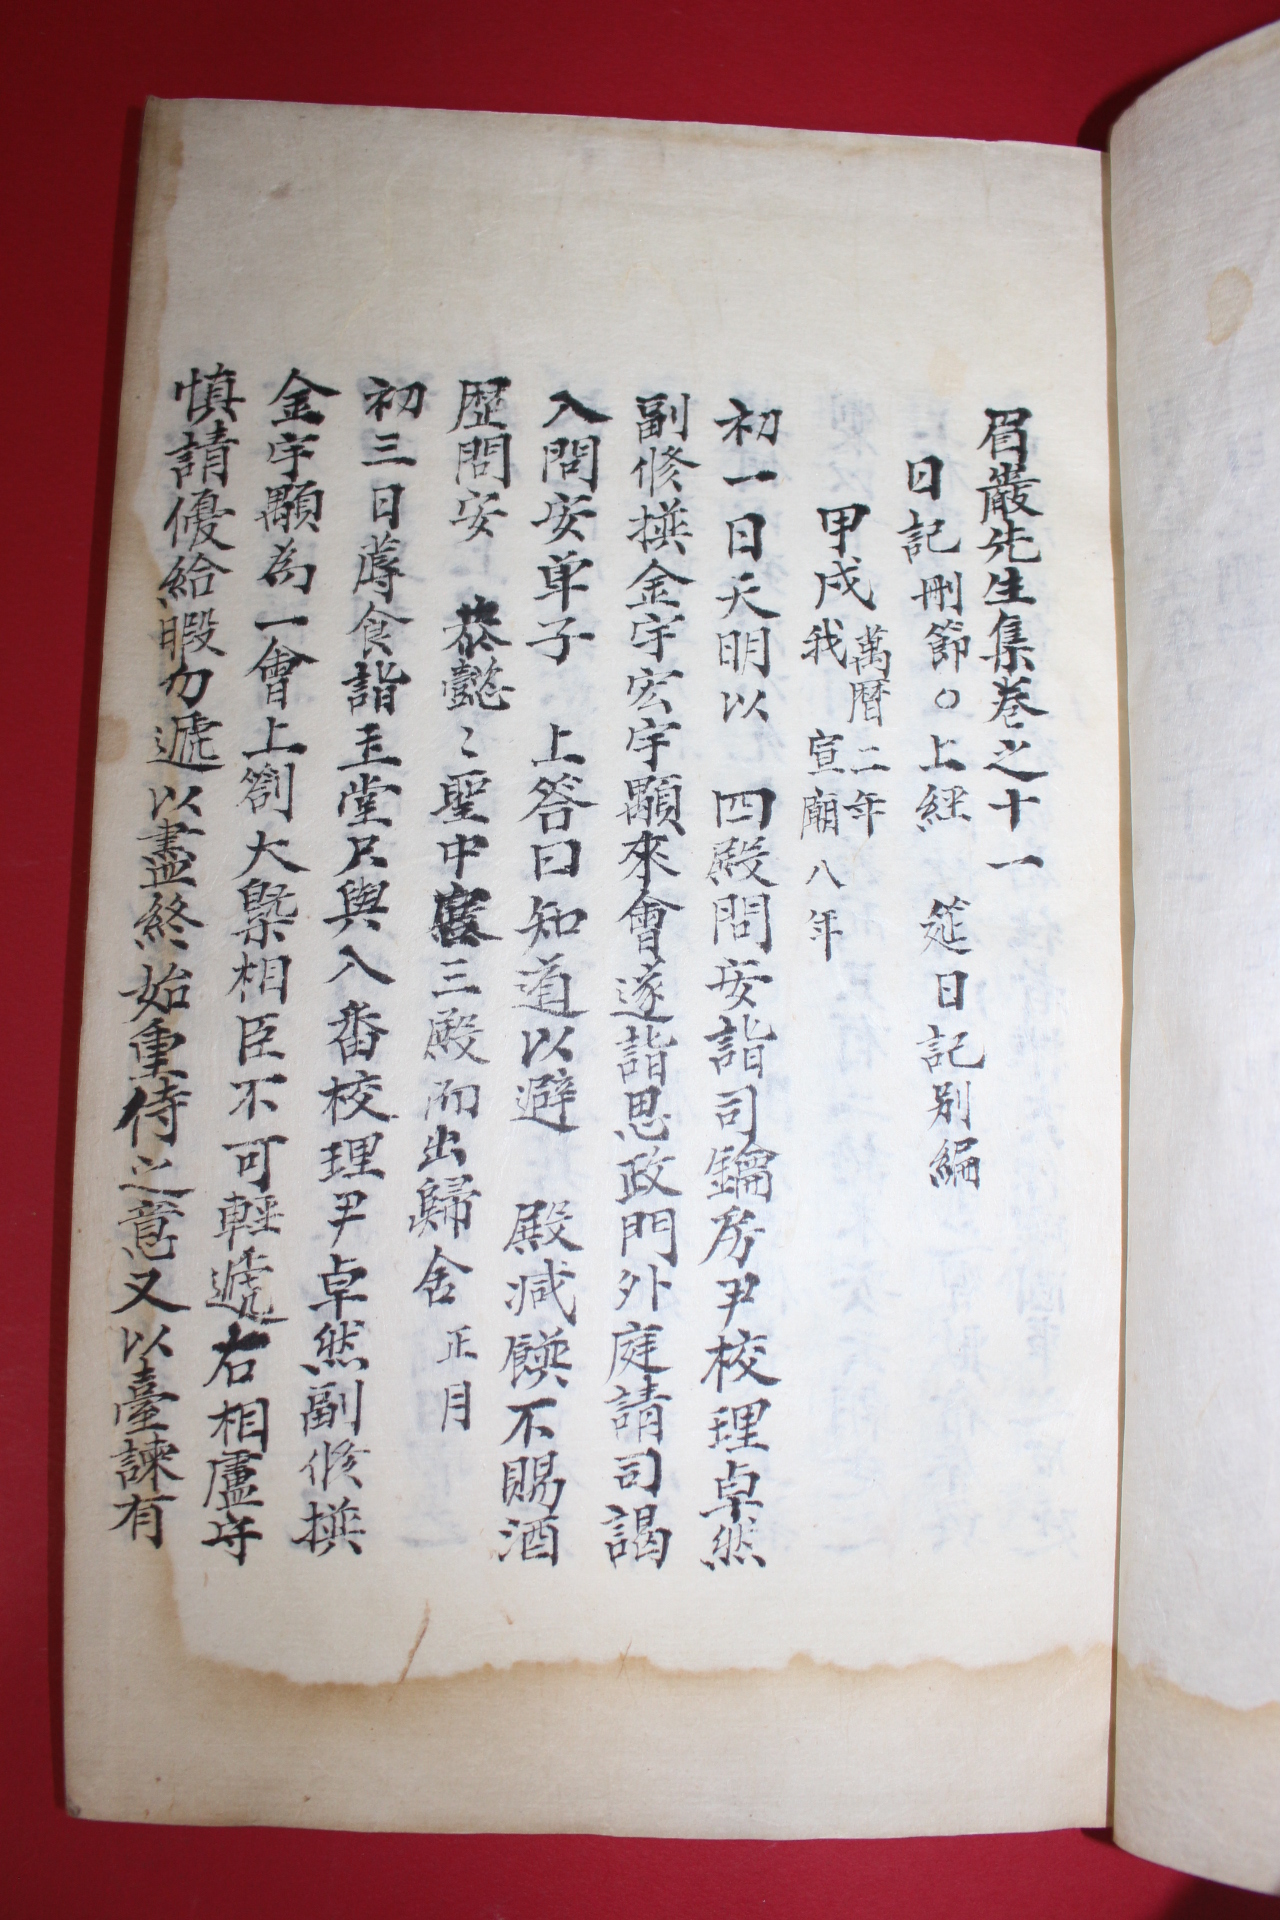 眉巖先生集卷之十一
日記刪節○上經 筵日記別編
甲戌萬曆二年
我 宣廟八年
初一日天明以 四殿問安詣司鑰房尹校理卓然
副修撰金宇宏宇顒來會遂詣思政門外庭請司謁
入問安单子 上答曰知道以避 殿减饌不賜酒
歷問安 恭懿〻聖中宮三殿而出歸舍正月
初三日蓐食詣玉堂只與入番校理尹卓然副修撰
金宇顒為一會上劄大槩相臣不可輕遞右相盧守
慎請優給暇勿遞以盡終始重待之意又以臺諫有